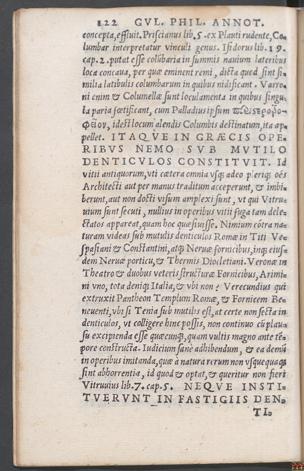 122 GVL. PHIL. ANNOT.
concepta, effluit. Priscianus lib. 5. ex Plauti rudente, Co-
lumbar interpretatur vinculi genus. Isidorus lib. 19.
cap. 2. putat esse collibaria in summis nauium lateribus
loca concaua, per quæ eminent remi, dicta quòd sint si-
milia latibulis columbarum in quibus nidificant. Varro-
ni enim & Columellæ sunt loculamenta in quibus singu-
la paria fœtificant, cum Palladius ipsum
idest locum alendis Columbis destinatum, ita ap-
pellet. ITAQVE IN GRÆCIS OPE
RIBVS NEMO SVB MVTILO
DENTICVLOS CONSTITVIT. Id
vitii antiquorum, vti cætera omnia vsq; adeo pleriq; oẽs
Architecti aut per manus traditum acceperunt, & imbi-
berunt, aut non docti visum amplexi sunt, vt qui Vitru-
uium sunt secuti, nullius in operibus vitii fuga tam dele-
ctatos appareat, quam hoc quæsiuisse. Nimium cõtra na-
turam videas sub mutulis denticulos Romæ in Titi Ve-
spasiani & Constantini, atq; Neruæ fornicibus, inq; eius-
dem Neruæ porticu, & Thermis Diocletiani. Veronæ in
Theatro & duobus veteris structuræ Fornicibus, Arimi-
ni vno, tota deniq; Italia, & vbi non? Verecundius qui
extruxit Pantheon Templum Romæ, & Fornicem Be-
neuenti, vbi si Tenia sub mutilis est, at certe non secta in
denticulos, vt colligere hinc possis, non continuo cũ plau-
su excipienda esse quæcunq; quam vultis magno ante tẽ-
pore constructa. Iudicium sanè adhibendum, & ea demũ
in operibus imitanda, quæ à natura rerum non vsquequaq;
sint abhorrentia, id quod & optat, & queritur non fieri
Vitruuius lib. 7. cap. 5. NEQVE INSTI-
TVERVNT IN FASTIGIIS DEN-
TI-